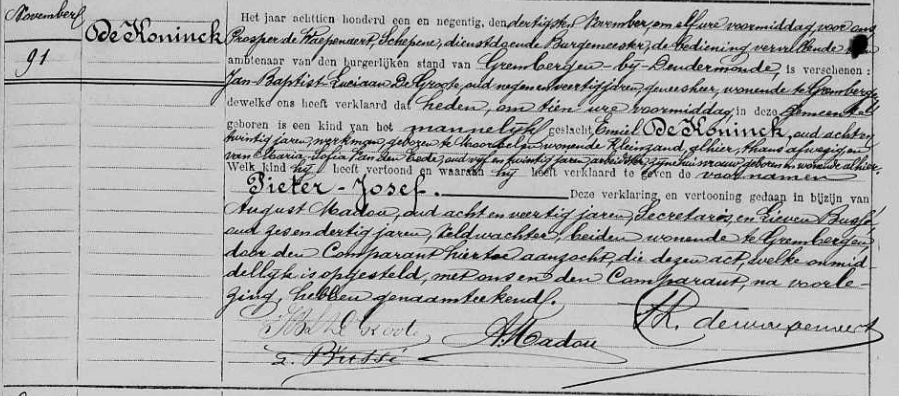 November
91
De Koninck
Het jaar achttien honderd een en negentig, den dertigsten November, om elf ure voormiddag, voor ons
Prosper de Waepenaert, Schepene, dienstdoende Burgemeester, de bediening vervullende van
ambtenaar van den burgerlijken stand van Grembergen-bij-Dendermonde, is verschenen:
Jan-Baptist-Luciaan De Groote, oud negen en veertig jaren, geneesheer, wonende te Grembergen
dewelke ons heeft verklaard dat heden, om tien ure voormiddag in deze gemeente
geboren is een kind van het mannelijk geslacht, Emiel De Koninck, oud acht en
twintig jaren, werkman, geboren te Moorsel en wonende Kleinzand, alhier, thans afwezig en
van Maria Sofia Van den Eede, oud vijf en twintig jaren, zijne huisvrouw, geboren en wonende alhier.
Welk kind hij heeft vertoond en waaraan hij heeft verklaard te geven de voornamen
Pieter-Josef. Deze verklaring, en vertooning gedaan in bijzijn van
August Madou, oud acht en veertig jaren, Secretaris, en Lieven Bussé
oud zes en dertig jaren, Veldwachter, beiden wonende te Grembergen
door den Comparant hiertoe aanzocht, die dezen act, welke onmid-
dellijk is opgesteld, met ons en den Comparant, na voorle-
zing, hebben genaamteekend.
De Groote
A. Madou
L. Bussé